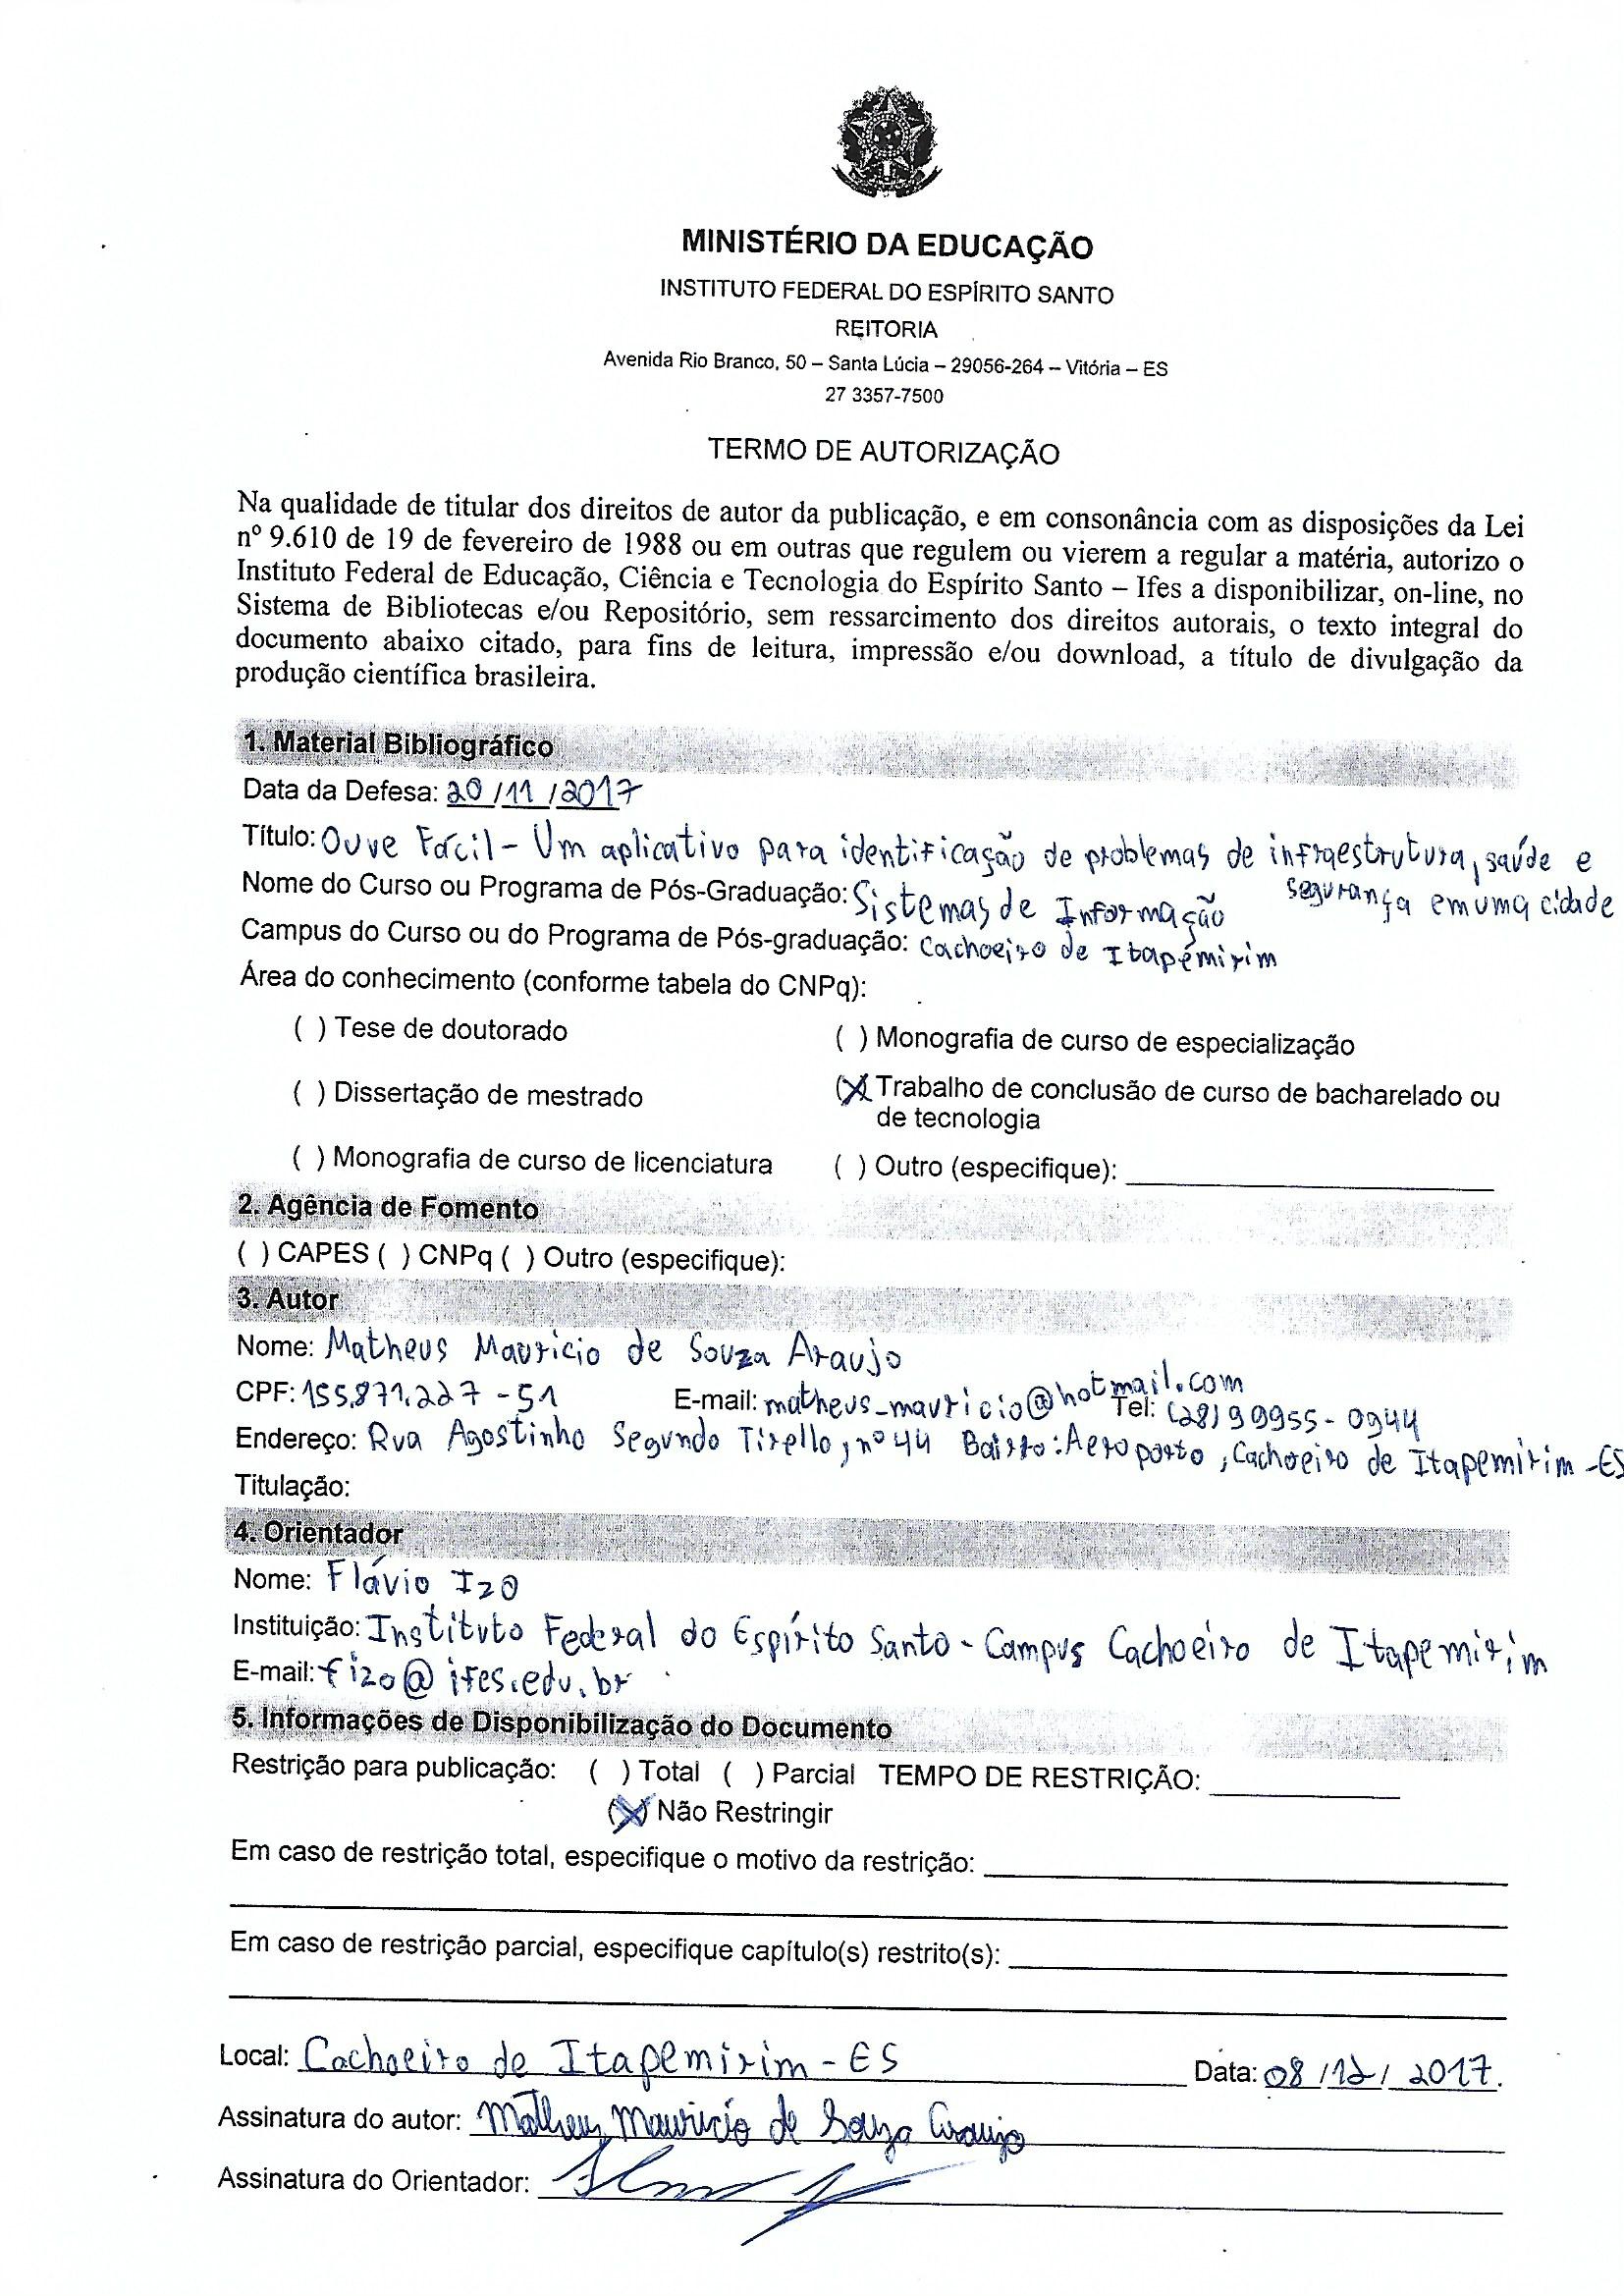 MINISTÉRIO DA EDUCAÇÃO
INSTITUTO FEDERAL DO ESPÍRITO SANTO
REITORIA
Avenida Rio Branco, 50 – Santa Lúcia – 29056-264 – Vitória – ES
27 3357-7500
TERMO DE AUTORIZAÇÃO
Na qualidade de titular dos direitos de autor da publicação, e em consonância com as disposições da Lei
nº 9.610 de 19 de fevereiro de 1988 ou em outras que regulem ou vierem a regular a matéria, autorizo o
Instituto Federal de Educação, Ciência e Tecnologia do Espírito Santo – Ifes a disponibilizar, on-line, no
Sistema de Bibliotecas e/ou Repositório, sem ressarcimento dos direitos autorais, o texto integral do
documento abaixo citado, para fins de leitura, impressão e/ou download, a título de divulgação da
produção científica brasileira.
1. Material Bibliográfico
Data da Defesa: 20/11/2017
Título: Ouve Fácil - Um aplicativo para identificação de problemas de infraestrutura, saúde e
segurança em uma cidade
Nome do Curso ou Programa de Pós-Graduação: Sistemas de Informação
Campus do Curso ou do Programa de Pós-graduação: Cachoeiro de Itapemirim
Área do conhecimento (conforme tabela do CNPq):
( ) Tese de doutorado ( ) Monografia de curso de especialização
( ) Dissertação de mestrado (X) Trabalho de conclusão de curso de bacharelado ou
de tecnologia
( ) Monografia de curso de licenciatura ( ) Outro (especifique):
2. Agência de Fomento
( ) CAPES ( ) CNPq ( ) Outro (especifique):
3. Autor
Nome: Matheus Mauricio de Souza Araujo
CPF: 155.871.227-51 E-mail: matheus_mauricio@hotmail.com Tel: (28)99955-0944
Endereço: Rua Agostinho Segundo Tirello, nº 44 Bairro: Aeroporto, Cachoeiro de Itapemirim -ES
Titulação:
4. Orientador
Nome: Flávio Izo
Instituição: Instituto Federal do Espírito Santo - Campus Cachoeiro de Itapemirim
E-mail: fizo@ifes.edu.br
5. Informações de Disponibilização do Documento
Restrição para publicação: ( ) Total ( ) Parcial TEMPO DE RESTRIÇÃO:
(X) Não Restringir
Em caso de restrição total, especifique o motivo da restrição:
Em caso de restrição parcial, especifique capítulo(s) restrito(s):
Local: Cachoeiro de Itapemirim - ES Data: 08/12/2017.
Assinatura do autor: Matheus Mauricio de Souza Araujo
Assinatura do Orientador: